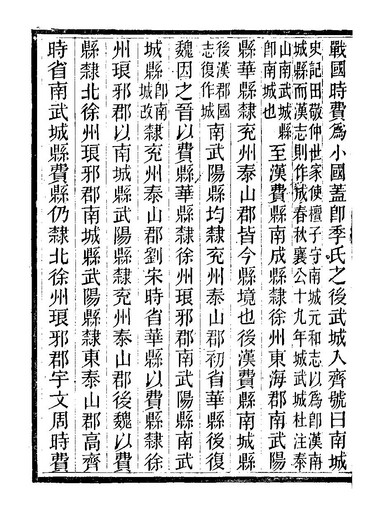 戰國時費爲小國蓋卽季氏之後武城入齊號曰南城
史記田敬仲世家使檀子守南城元和志以爲卽漢南
城縣而漢志則作成春秋襄公十九年城武城杜注泰
山南武城縣
卽南城也
至漢費縣南成縣隸徐州東海郡南武陽
縣華縣隸兗州泰山郡皆今縣境也後漢費縣南城縣
後漢郡國
志復作城
南武陽縣均隸兗州泰山郡初省華縣後復
魏因之晉以費縣華縣隸徐州琅邪郡南武陽縣南武
城縣
卽南
城改
隸兗州泰山郡劉宋時省華縣以費縣隸徐
州琅邪郡以南城縣武陽縣隸兗州泰山郡後魏以費
縣隸北徐州琅邪郡南城縣武陽縣隸東泰山郡高齊
時省南武城縣費縣仍隸北徐州琅邪郡宇文周時費